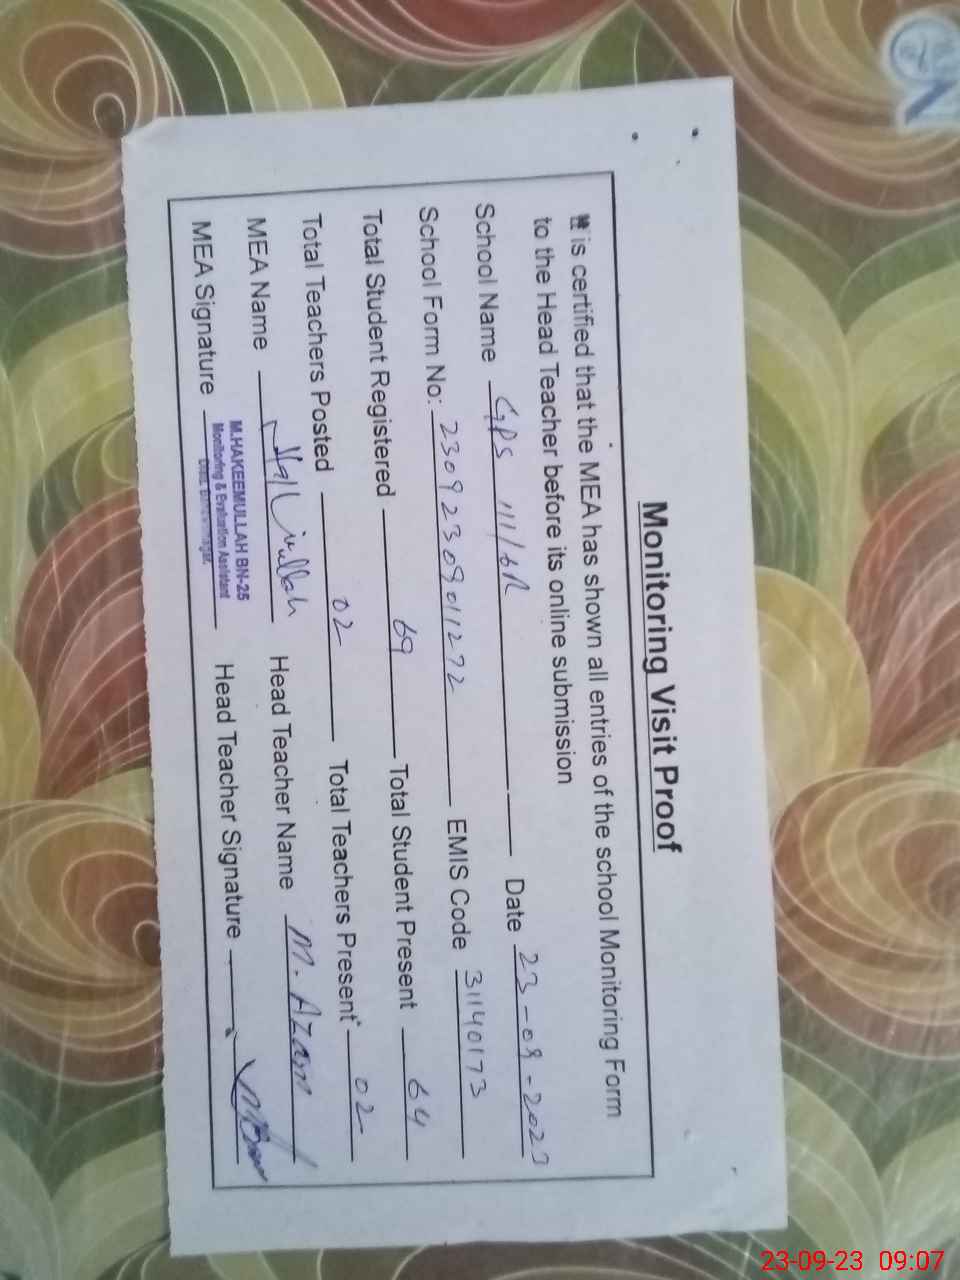 Monitoring Visit Proof
It is certified that the MEA has shown all entries of the school Monitoring Form
to the Head Teacher before its online submission
School Name GPS 111/6R Date 23-09-2023
School Form No: 2309230901272 EMIS Code 31140173
Total Student Registered 69 Total Student Present 64
Total Teachers Posted 02 Total Teachers Present 02
MEA Name Head Teacher Name M. Azam
M.HAKEEMULLAH BN-25
Monitoring & Evaluation Assistant
MEA Signature Head Teacher Signature
23-09-23 09:07